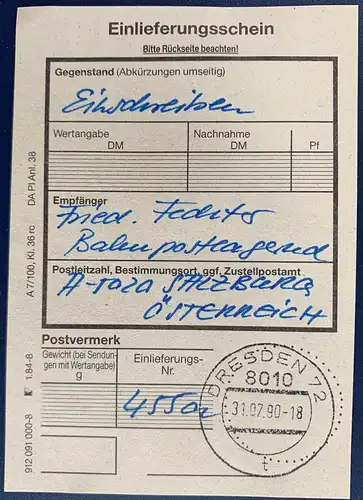 Einlieferungsschein
Bitte Rückseite beachten!
Gegenstand (Abkürzungen umseitig)
Einschreiben
Wertangabe
DM
Nachnahme
DM
Pf
Empfänger
Fried.
Bahnpostlagernd
Postleitzahl, Bestimmungsort, ggf. Zustellpostamt
A-5020 SALZBURG
ÖSTERREICH
Postvermerk
Gewicht (bei Sendun-
gen mit Wertangabe)
g
Einlieferungs-
Nr.
455
DRESDEN 72
8010
31.07.90-18
t
DA PI Anl. 38
A 7/100, Kl. 36 rc
1.84-8
912 091 000-8